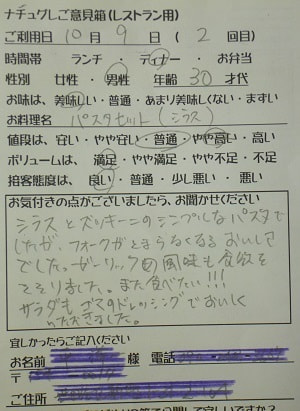 ナチュグしご意見箱(レストラン用)
ご利用日 10月 9日 ( 2 回目)
時間帯 ランチ ・ ディナー ・ お弁当
性別 女性 ・ 男性 年齢 30 才代
お味は、美味しい・普通・あまり美味しくない・まずい
お料理名 パスタセット (シラス)
値段は、安い・やや安い・普通・やや高い・高い
ボリュームは、満足・やや満足・やや不足・不足
接客態度は、良い・普通・少し悪い・悪い
お気付きの点がございましたら、お聞かせください
シラスとズッキーニのシンプルなパスタで
したが、フォークがとまらなくなるおいしさ
でした。ガーリックの風味も食欲を
そそりました。また食べたい!!!
サラダも、ゴマのドレッシングでおいしく
いただきました。
宜しかったらご記入ください
お名前 様 電話
〒
ご住所